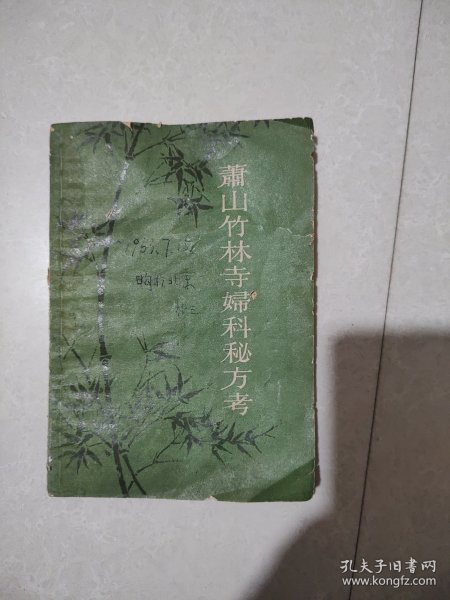 蕭山竹林寺婦科秘方考
购于北京
孔夫子旧书网
www.kongfz.com